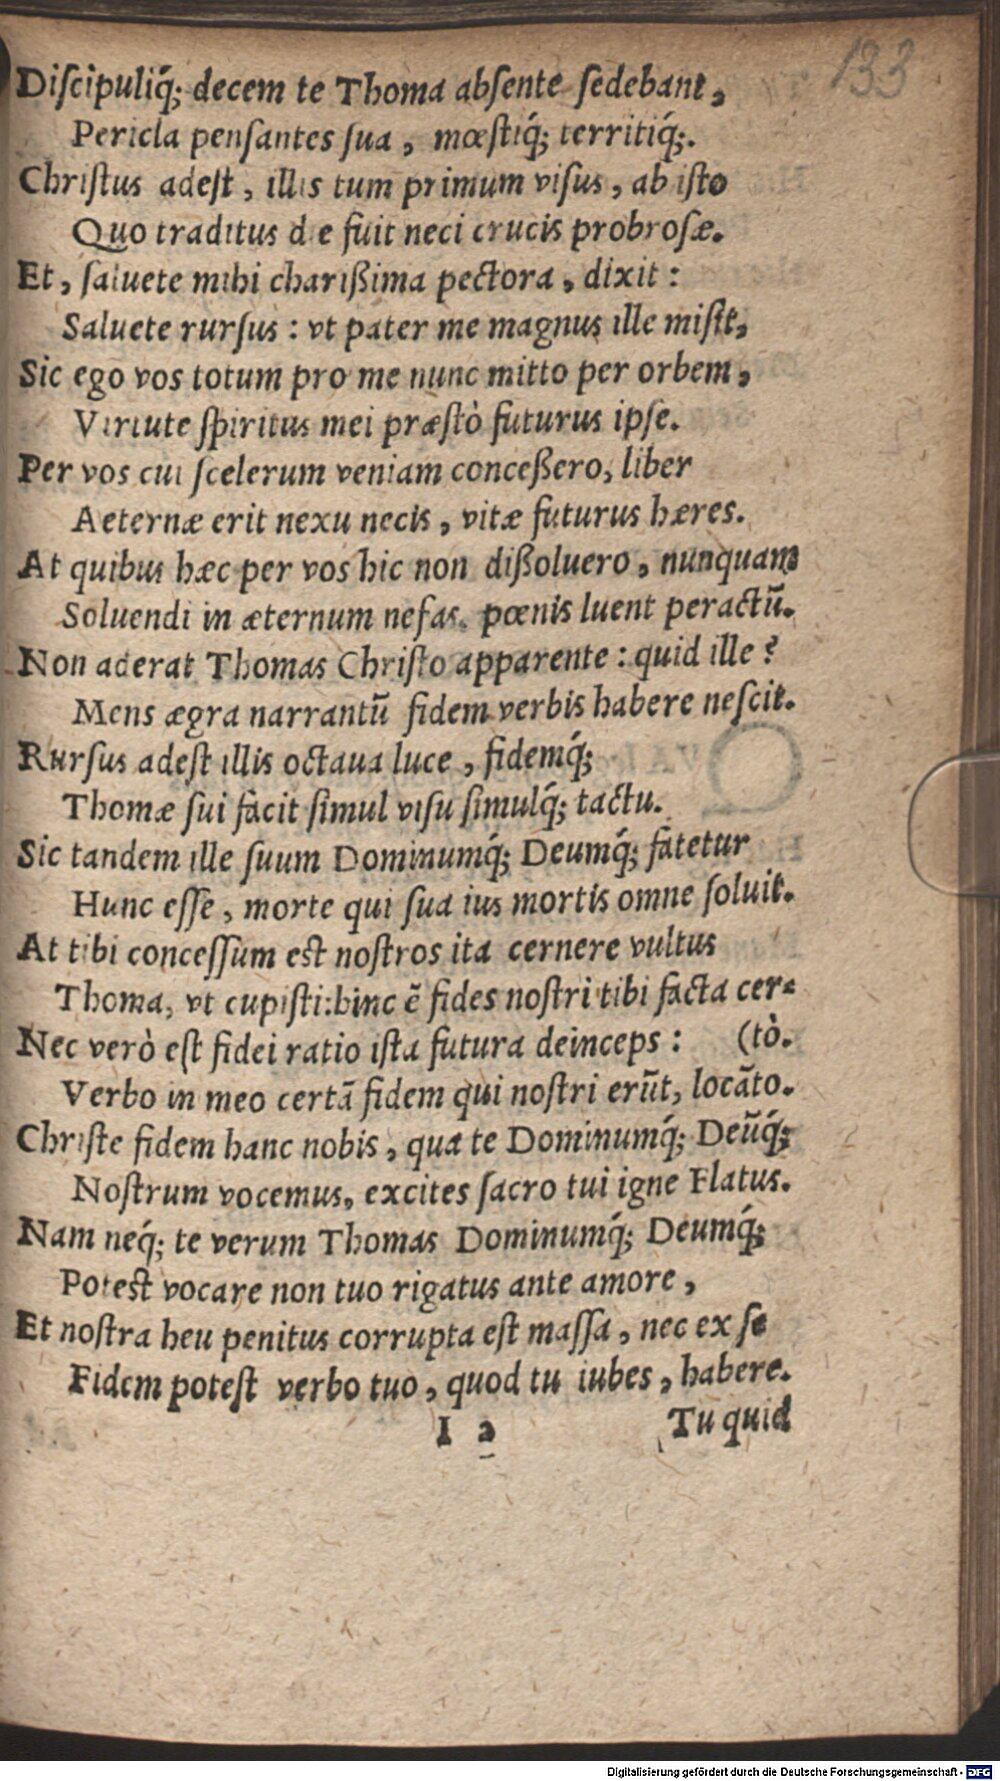 133
Discipuliq́; decem te Thoma absente sedebant,
Pericla pensantes sua, mœstiq́; territiq́;.
Christus adest, illis tum primum visus, ab isto
Quo traditus die fuit neci crucis probrosæ.
Et, saluete mihi charißima pectora, dixit:
Saluete rursus: vt pater me magnus ille misit,
Sic ego vos totum pro me nunc mitto per orbem,
Virtute spiritus mei præstò futurus ipse.
Per vos cui scelerum veniam conceßero, liber
Aeternæ erit nexu necis, vitæ futurus hæres.
At quibus hæc per vos hic non dißoluero, nunquam
Soluendi in æternum nefas. pœnis luent peractū.
Non aderat Thomas Christo apparente: quid ille?
Mens ægra narrantū fidem verbis habere nescit.
Rursus adest illis octaua luce, fidemq́;
Thomæ sui facit simul visu simulq́; tactu.
Sic tandem ille suum Dominumq́; Deumq́; fatetur
Hunc esse, morte qui sua ius mortis omne soluit.
At tibi concessum est nostros ita cernere vultus
Thoma, vt cupisti: hinc ē fides nostri tibi facta cer-
Nec verò est fidei ratio ista futura deinceps: (tò.
Verbo in meo certā fidem qui nostri erūt, locāto.
Christe fidem hanc nobis, qua te Dominumq́; Deūq́;
Nostrum vocemus, excites sacro tui igne Flatus.
Nam neq́; te verum Thomas Dominumq́; Deumq́;
Potest vocare non tuo rigatus ante amore,
Et nostra heu penitus corrupta est massa, nec ex se
Fidem potest verbo tuo, quod tu iubes, habere.
I 2 Tu quid
Digitalisierung gefördert durch die Deutsche Forschungsgemeinschaft - DFG